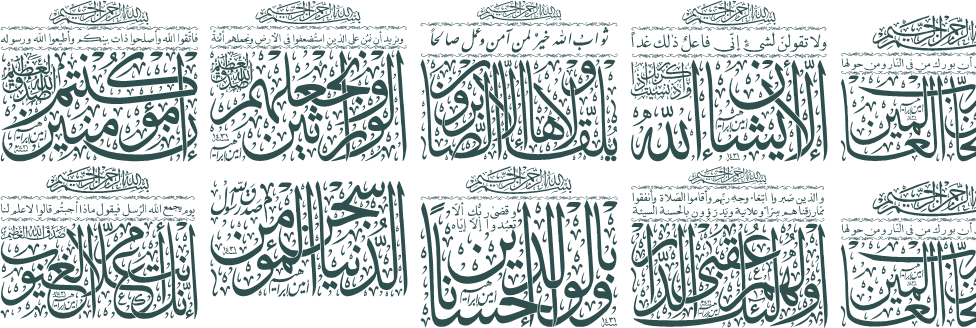 بسم الله الرحمن الرحيم
ولا تقولن لشيء إني فاعل ذلك غداً
إلا أن يشاء الله
واذكر ربك إذا نسيت
بسم الله الرحمن الرحيم
ثواب الله خير لمن آمن وعمل صالحا
ولا يلقاها إلا الصابرون
بسم الله الرحمن الرحيم
ونريد أن نمن على الذين استضعفوا في الأرض ونجعلهم أئمة
ونجعلهم الوارثين
صدق الله العلي العظيم
بسم الله الرحمن الرحيم
فاتقوا الله وأصلحوا ذات بينكم وأطيعوا الله ورسوله
إن كنتم مؤمنين
صدق الله العلي العظيم
بسم الله الرحمن الرحيم
أن بورك من في النار ومن حولها
رب العالمين
بسم الله الرحمن الرحيم
والذين صبروا ابتغاء وجه ربهم وأقاموا الصلاة وأنفقوا
مما رزقناهم سرا وعلانية ويدرؤون بالحسنة السيئة
أولئك لهم عقبى الدار
بسم الله الرحمن الرحيم
وقضى ربك ألا
تعبدوا إلا إياه
وبالوالدين إحسانا
١٤٣١
الدنيا سجن المؤمن
صدق رسول الله
بسم الله الرحمن الرحيم
يوم يجمع الله الرسل فيقول ماذا أجبتم قالوا لا علم لنا
إنك أنت علام الغيوب
صدق الله العلي العظيم
بسم الله الرحمن الرحيم
أن بورك من في النار ومن حولها
رب العالمين